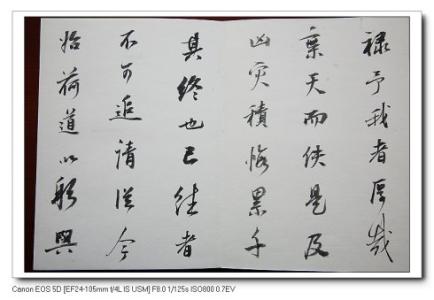 禄予我者厚哉
棄天而佚是及
凶灾積悔累千
其終也已往者
不可追請從今
始荷道以躬與
Canon EOS 5D [EF24-105mm f/4L IS USM] F8.0 1/125s ISO800 0.7EV